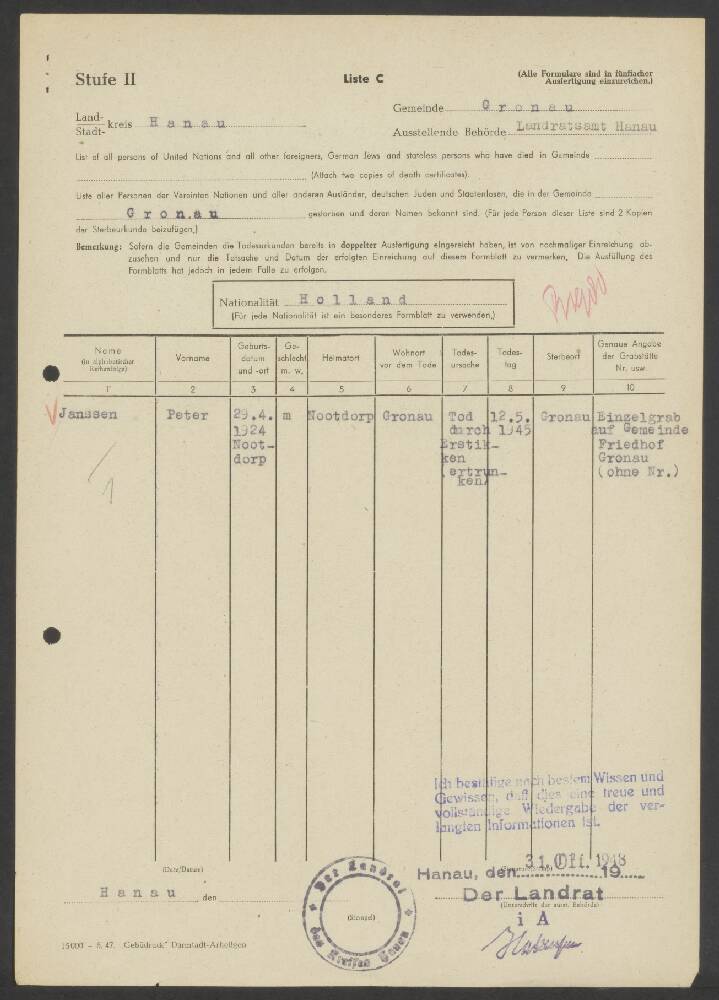 Stufe II
Liste C
(Alle Formulare sind in fünffacher
Ausfertigung einzureichen.)
Gemeinde Gronau
Land-
Stadt-
kreis Hanau
Ausstellende Behörde Landratsamt Hanau
List of all persons of United Nations and all other foreigners, German Jews and stateless persons who have died in Gemeinde
(Attach two copies of death certificates).
Liste aller Personen der Vereinten Nationen und aller anderen Ausländer, deutschen Juden und Staatenlosen, die in der Gemeinde
Gronau gestorben und deren Namen bekannt sind. (Für jede Person dieser Liste sind 2 Kopien
der Sterbeurkunde beizufügen.)
Bemerkung: Sofern die Gemeinden die Todesurkunden bereits in doppelter Ausfertigung eingereicht haben, ist von nochmaliger Einreichung ab-
zusehen und nur die Tatsache und Datum der erfolgten Einreichung auf diesem Formblatt zu vermerken. Die Ausfüllung des
Formblatts hat jedoch in jedem Falle zu erfolgen.
Nationalität Holland
(Für jede Nationalität ist ein besonderes Formblatt zu verwenden.)
Name
(in alphabetischer
Reihenfolge)
Vorname
Geburts-
datum
und -ort
Ge-
schlecht
m. w.
Heimatort
Wohnort
vor dem Tode
Todes-
ursache
Todes-
tag
Sterbeort
Genaue Angabe
der Grabstätte
Nr. usw.
1 2 3 4 5 6 7 8 9 10
Janssen
Peter
29.4.
1924
Noot-
dorp
m
Nootdorp
Gronau
Tod
durch
Erstik-
ken
(ertrun-
ken)
12.5.
1945
Gronau
Einzelgrab
auf Gemeinde
Friedhof
Gronau
(ohne Nr.)
1
Ich bestätige nach bestem Wissen und
Gewissen, daß dies eine treue und
vollständige Wiedergabe der ver-
langten Informationen ist.
(Date/Datum)
Hanau, den
Der Landrat
des Kreises Hanau
(Stempel)
Hanau, den 31. Okt. 1948
19
Der Landrat
(Unterschrift der ausst. Behörde)
i A
15000 – 6. 47. „Gebüdruck" Darmstadt-Arheilgen